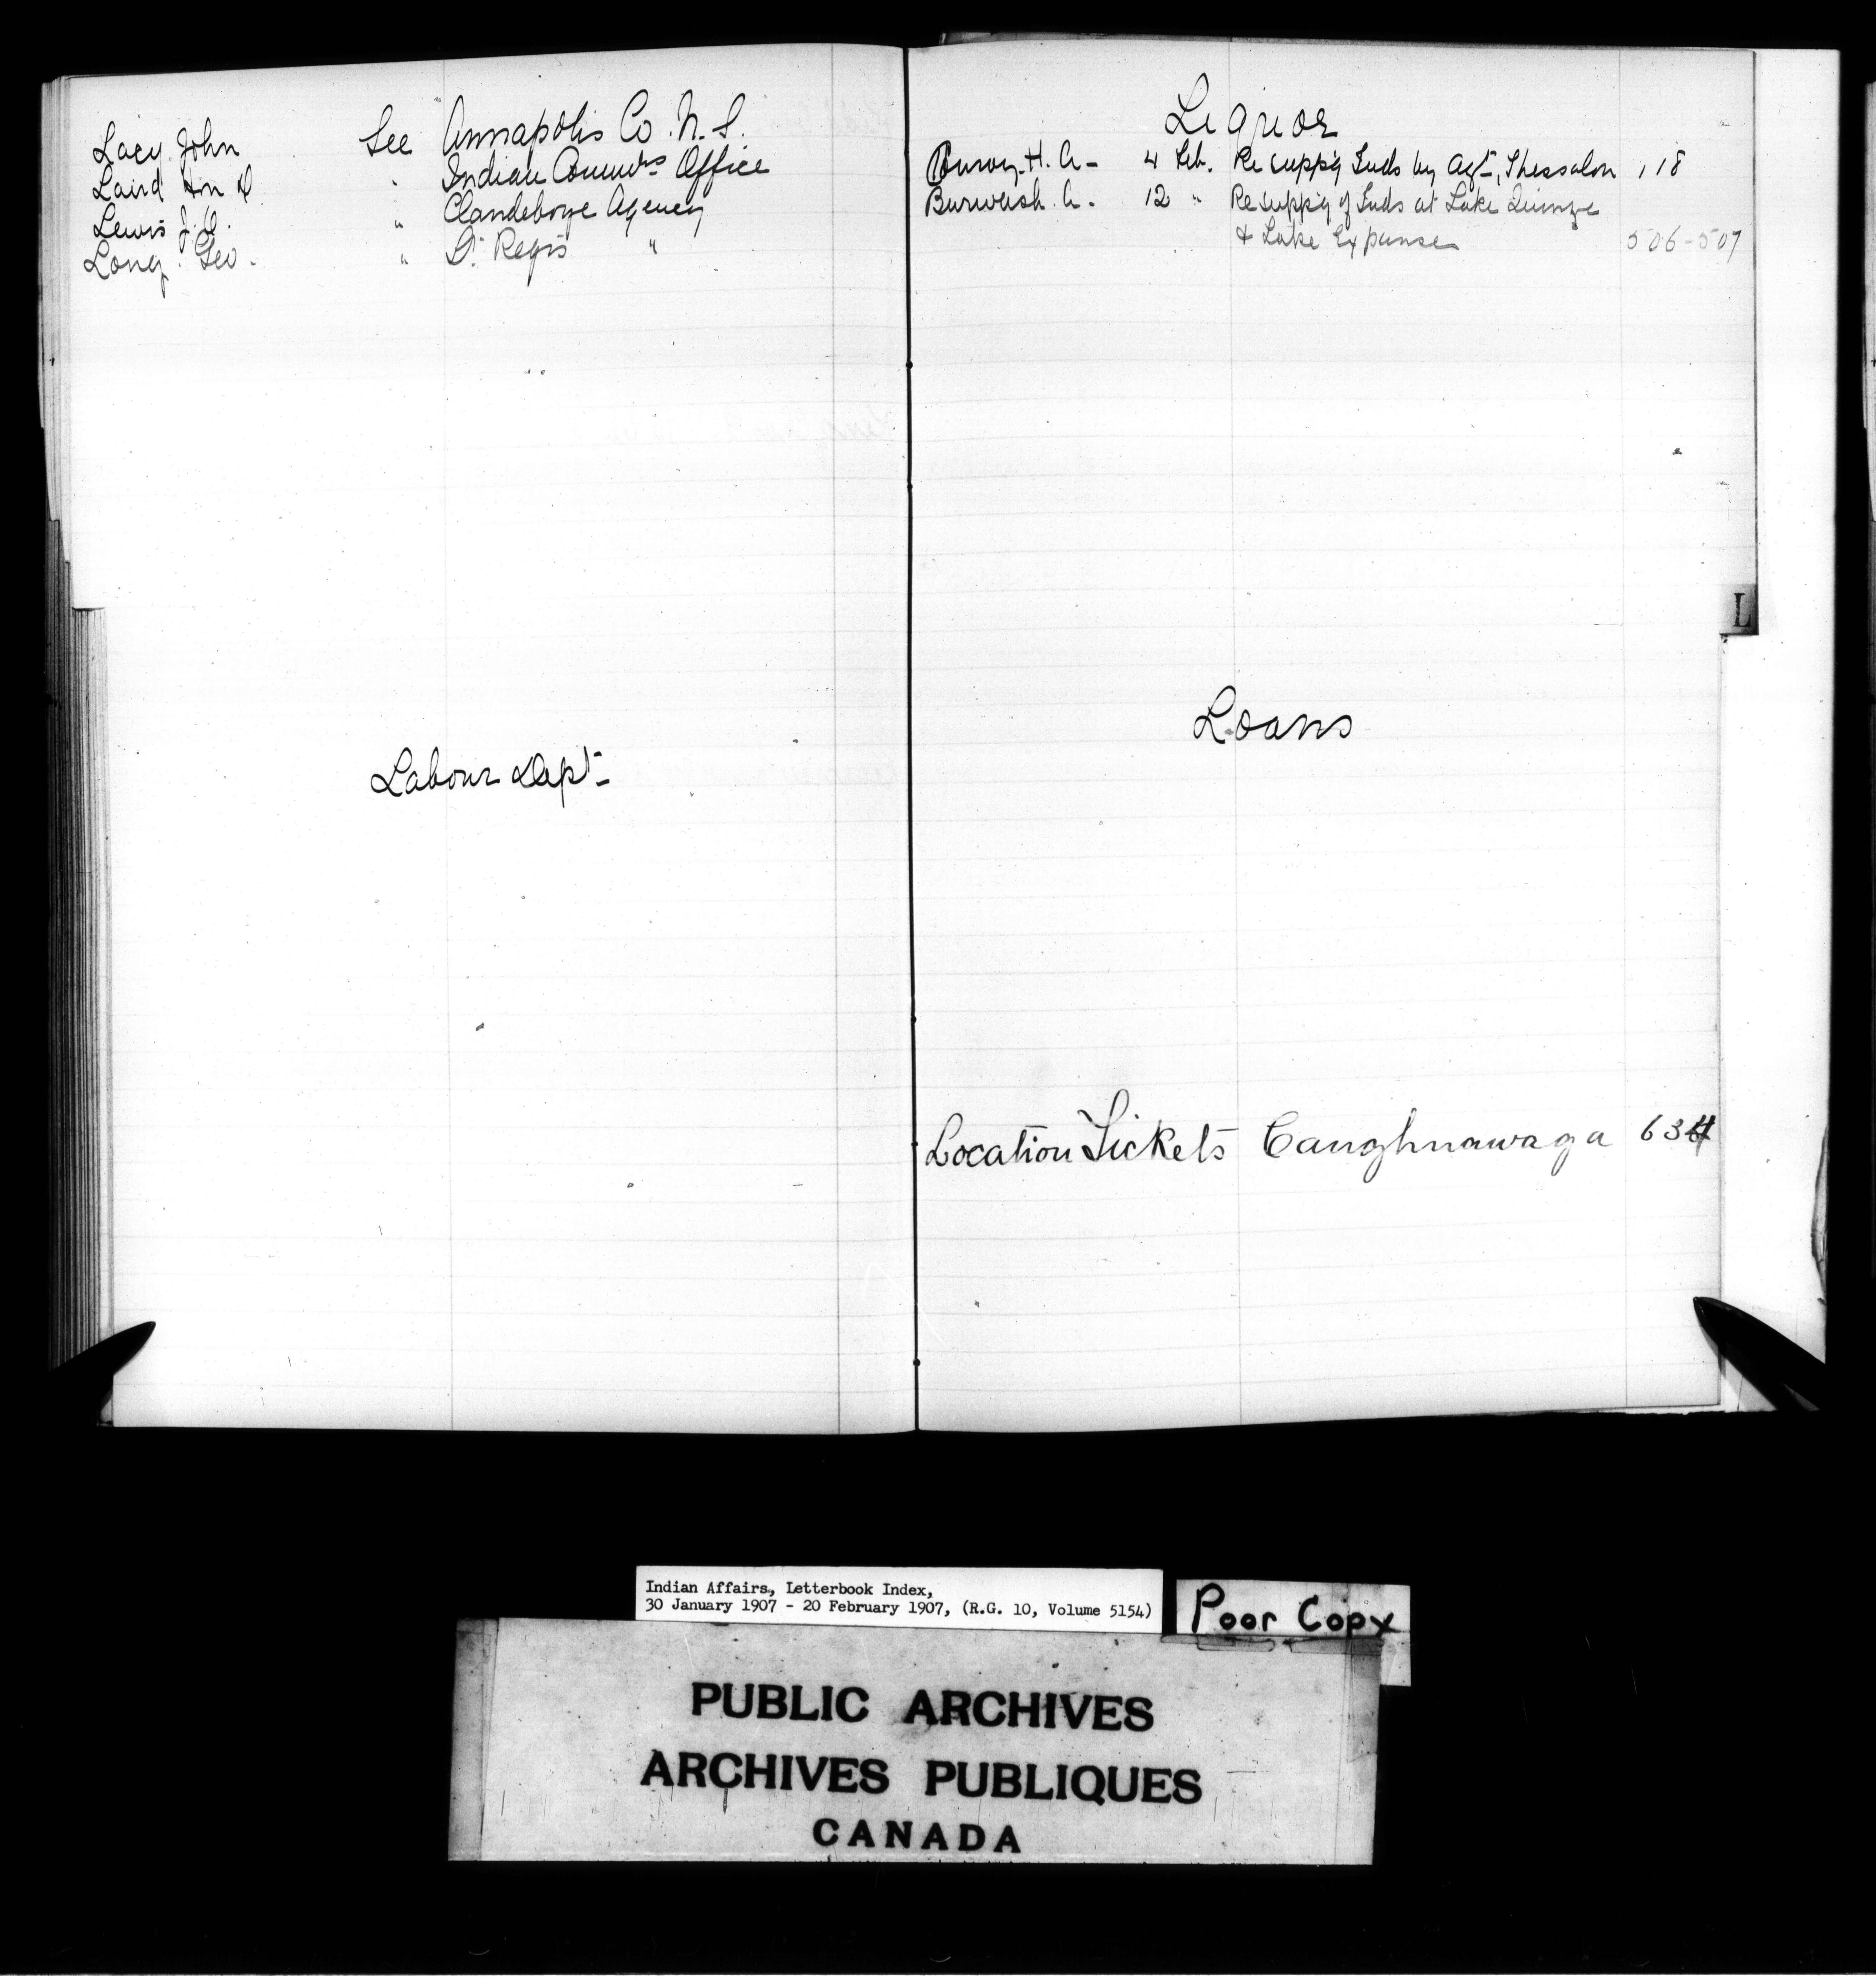 Lacy John See Annapolis Co. N.S.
Laird Hon D " Indian Commrs Office
Lewis J.O. " Clandeboye Agency
Long Geo. " St. Regis "
Labour Dept
Liquor
H. A. 4 Feb. Re supp'g Inds by Agt, Thessalon 118
Burwash A. 12 " Re supp'g of Inds at Lake Quinze
& Lake Expanse 506-507
L
Loans
Location Tickets Caughnawaga 634
Indian Affairs, Letterbook Index,
30 January 1907 - 20 February 1907, (R.G. 10, Volume 5154)
Poor Copy
PUBLIC ARCHIVES
ARCHIVES PUBLIQUES
CANADA